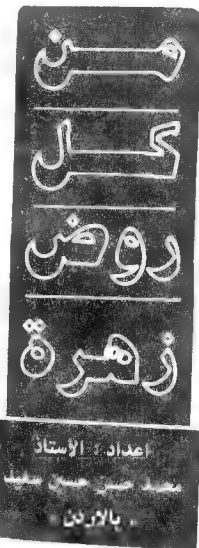 من
كل
روض
زهرة
اعداد : الأستاذ
محمد حسن حسن سعيد
« بالاردن »